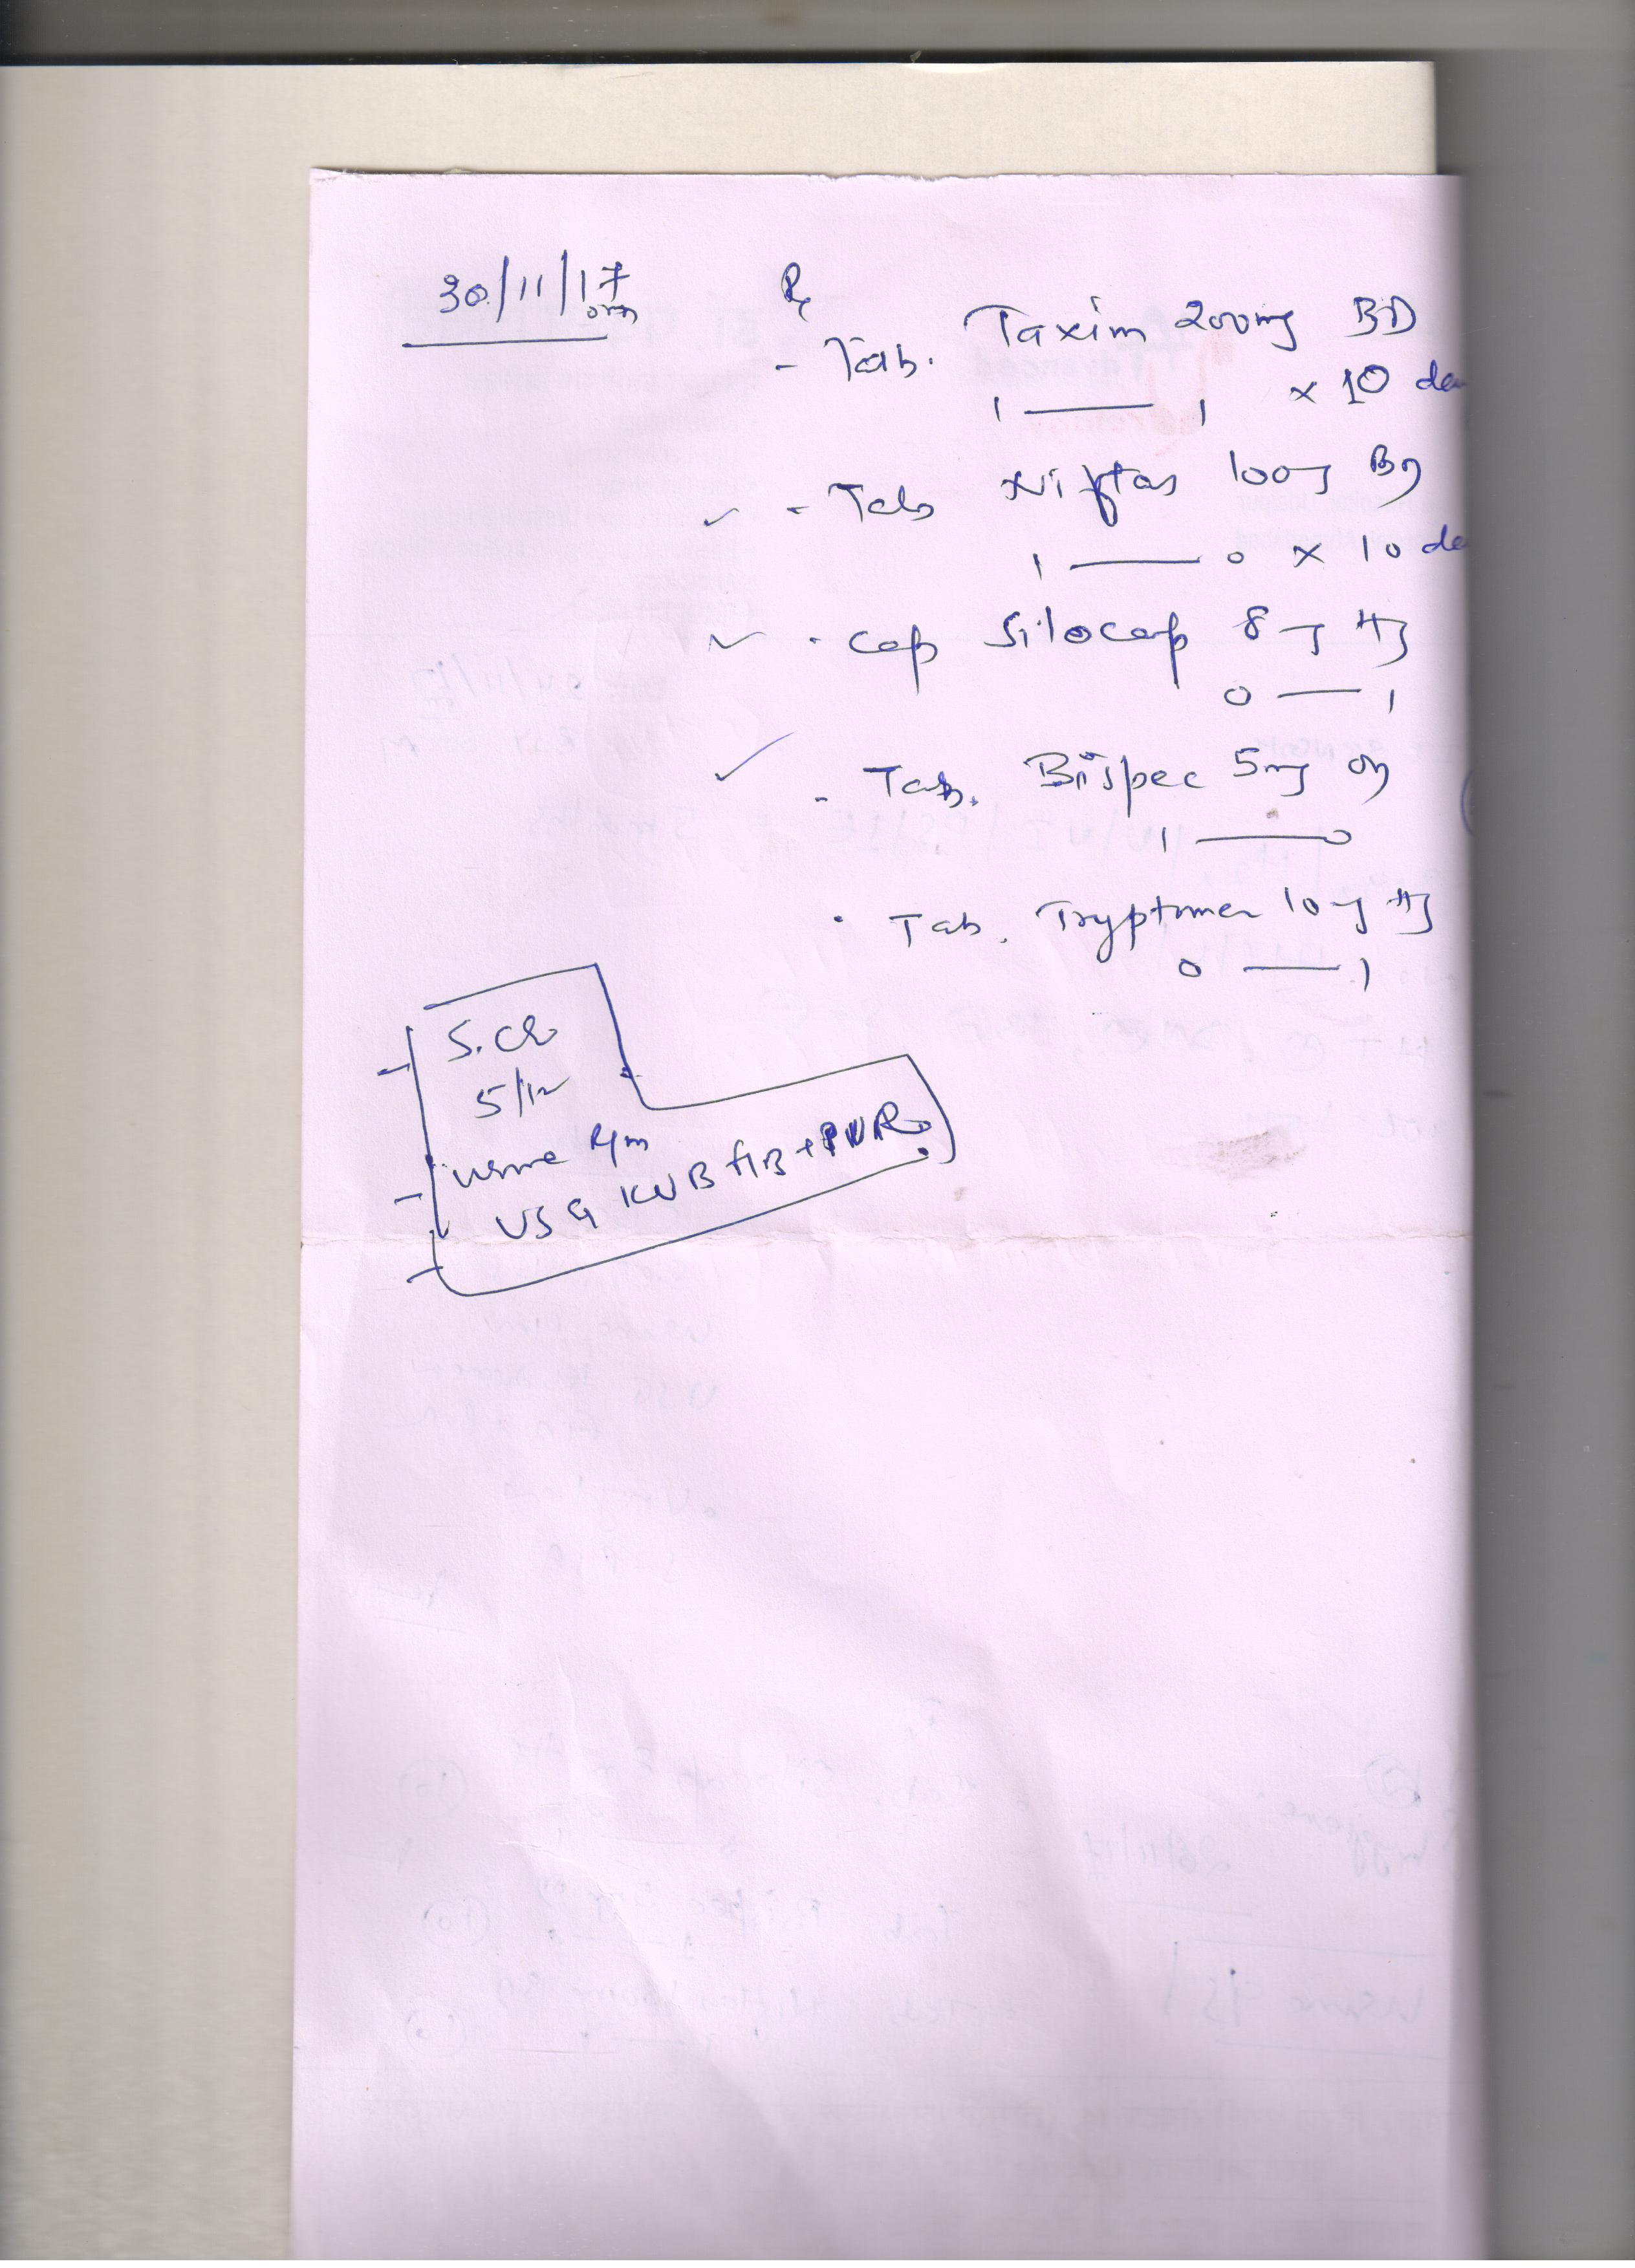 30/11/17
Rx
- Tab. Taxim 200mg BD
1 — 1 x 10 da
- Tab Niftas 100mg BD
1 — 0 x 10 da
- Cap Silocap 8mg HS
0 — 1
- Tab. Bispec 5mg OD
1 — 0
- Tab. Tryptomer 10mg HS
0 — 1
S. Cr
5/12
Urine R/m
USG KUB + PVR